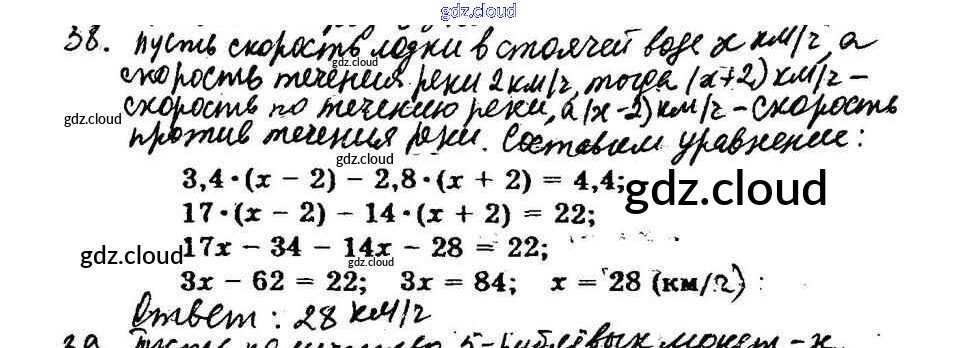 gdz.cloud
38. Пусть скорость лодки в стоячей воде x км/г, а
скорость течения реки 2 км/г, тогда (x+2) км/г –
gdz.cloud
скорость по течению реки, а (x-2) км/г – скорость
gdz.cloud
против течения реки. Составим уравнение:
gdz.cloud
3,4·(x − 2) − 2,8·(x + 2) = 4,4;
gdz.cloud
17·(x − 2) − 14·(x + 2) = 22;
17x − 34 − 14x − 28 = 22;
gdz.cloud
gdz.cloud
3x − 62 = 22; 3x = 84; x = 28 (км/г)
Ответ: 28 км/г
39. Пусть количество 5-рублёвых монет – x